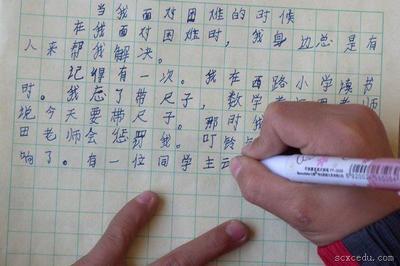 当我面对困难的时候
在我面对困难时，我身边总是有
人来帮我解决。
记得有一次。我在西路小学读书
时。我忘了带尺子，数学老师
说今天要带尺子。那时我
田老师会惩罚我。叮铃
响了。有一位同学主
scxcedu.com